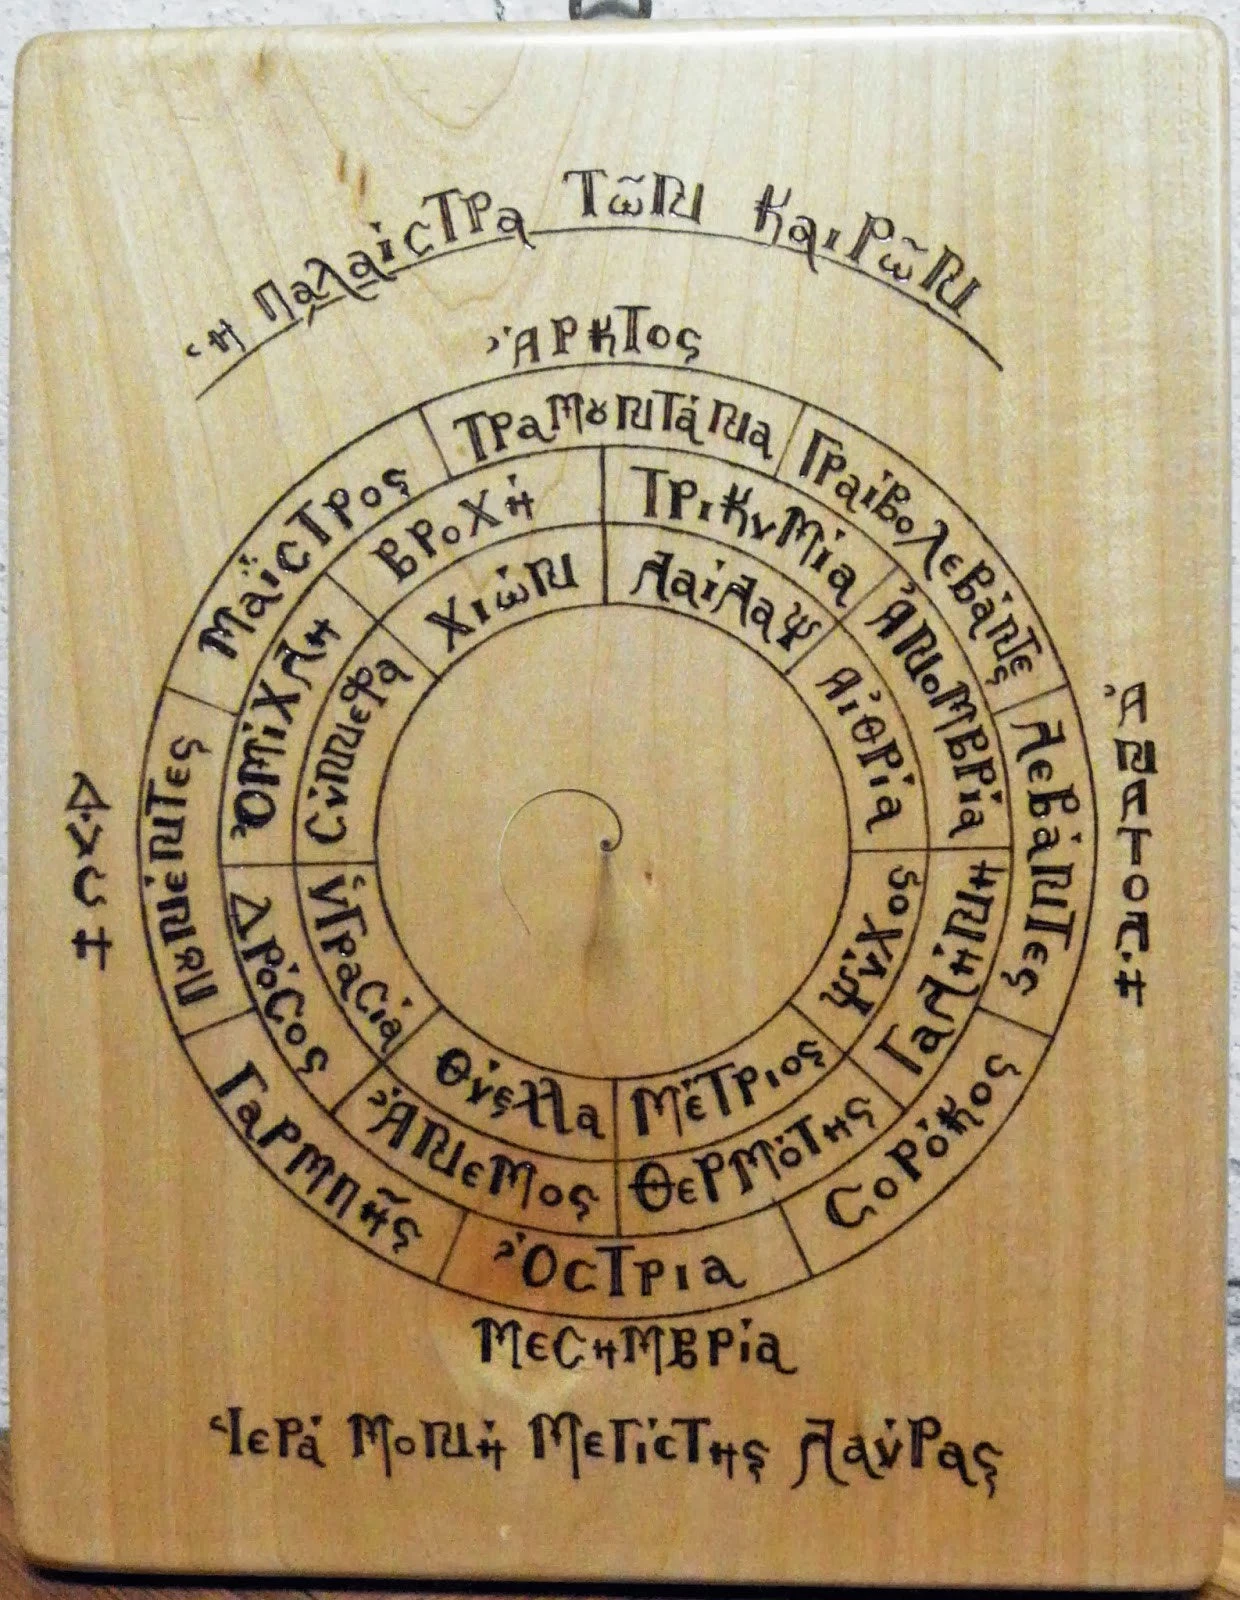 Ἡ Παλαίστρα τῶν Καιρῶν
Ἄρκτος
Τραμουντάνα
Γραιβολεβάντες
Λεβάντες
Σορόκος
Ὄστρια
Γαρμπῆς
Πουνέντες
Μαΐστρος
Τρικυμία
Ἀνομβρία
Γαλήνη
Θερμότης
Ἄνεμος
Δρόσος
Ὀμίχλη
Βροχή
Λαίλαψ
Αἰθρία
Ψύχος
Μέτριος
Θύελλα
Ὑγρασία
Σύννεφα
Χιών
Ἀνατολή
Δύση
Μεσημβρία
Ἱερά Μονή Μεγίστης Λαύρας